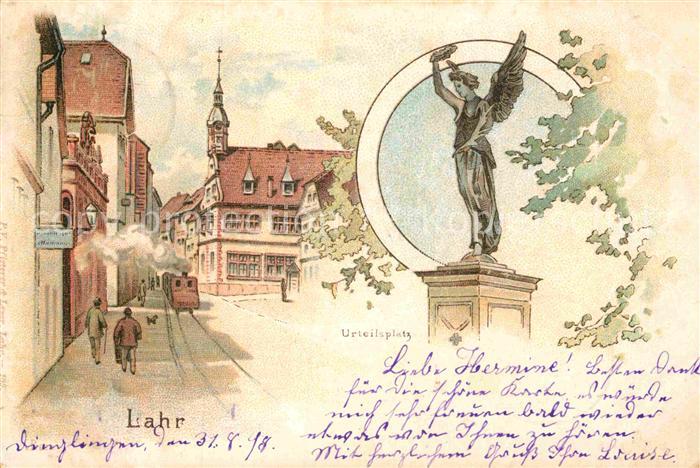 Urteilsplatz
Liebe Hermine! Besten Dank
für die schöne Karte, es würde
mich sehr freuen bald wieder
etwas von Ihnen zu hören.
Mit herzlichem Gruß Ihre Louise.
Lahr
Dinglingen, den 31. 8. 98.